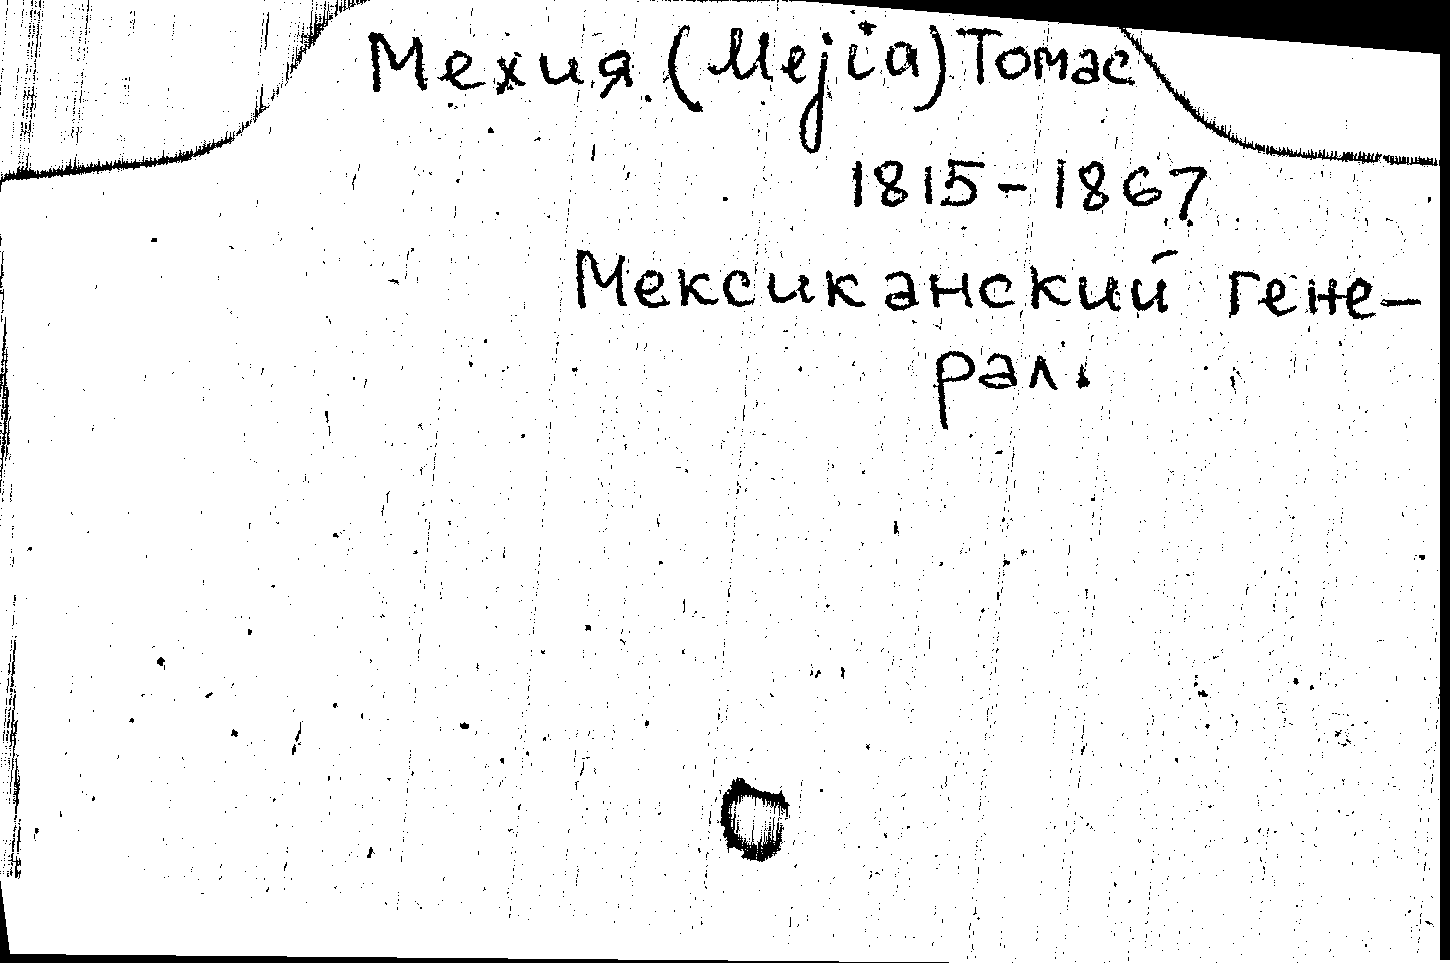 Мехия (Mejia) Томас
1815-1867
Мексиканский гене-
рал.